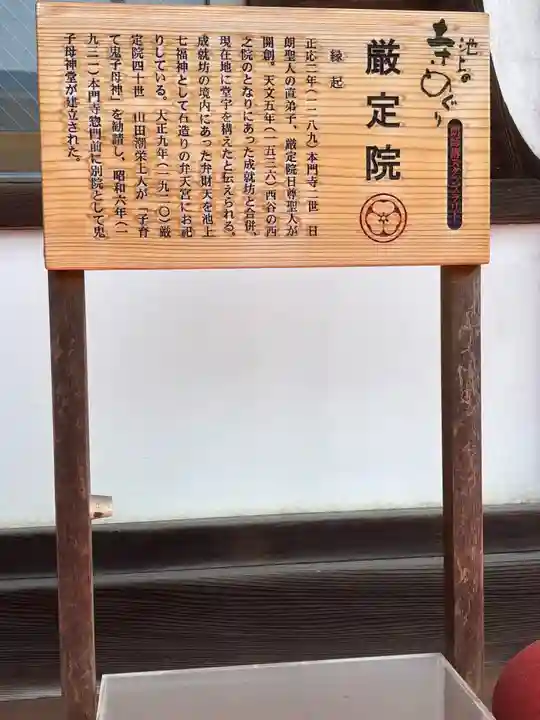 池上の
寺めぐり
厳定院
縁起
正応二年（一二八九）本門寺二世 日
朗聖人の直弟子、厳定院日尊聖人が
開創。天文五年（一五三六）西谷の西
之院のとなりにあった成就坊と合併、
現在地に堂宇を構えたと伝えられる。
成就坊の境内にあった弁財天を池上
七福神として石造りの弁天宮にお祀
りしている。大正九年（一九二〇）厳
定院四十世 山田潮栄上人が「子育
て鬼子母神」を勧請し、昭和六年（一
九三一）本門寺惣門前に別院として鬼
子母神堂が建立された。